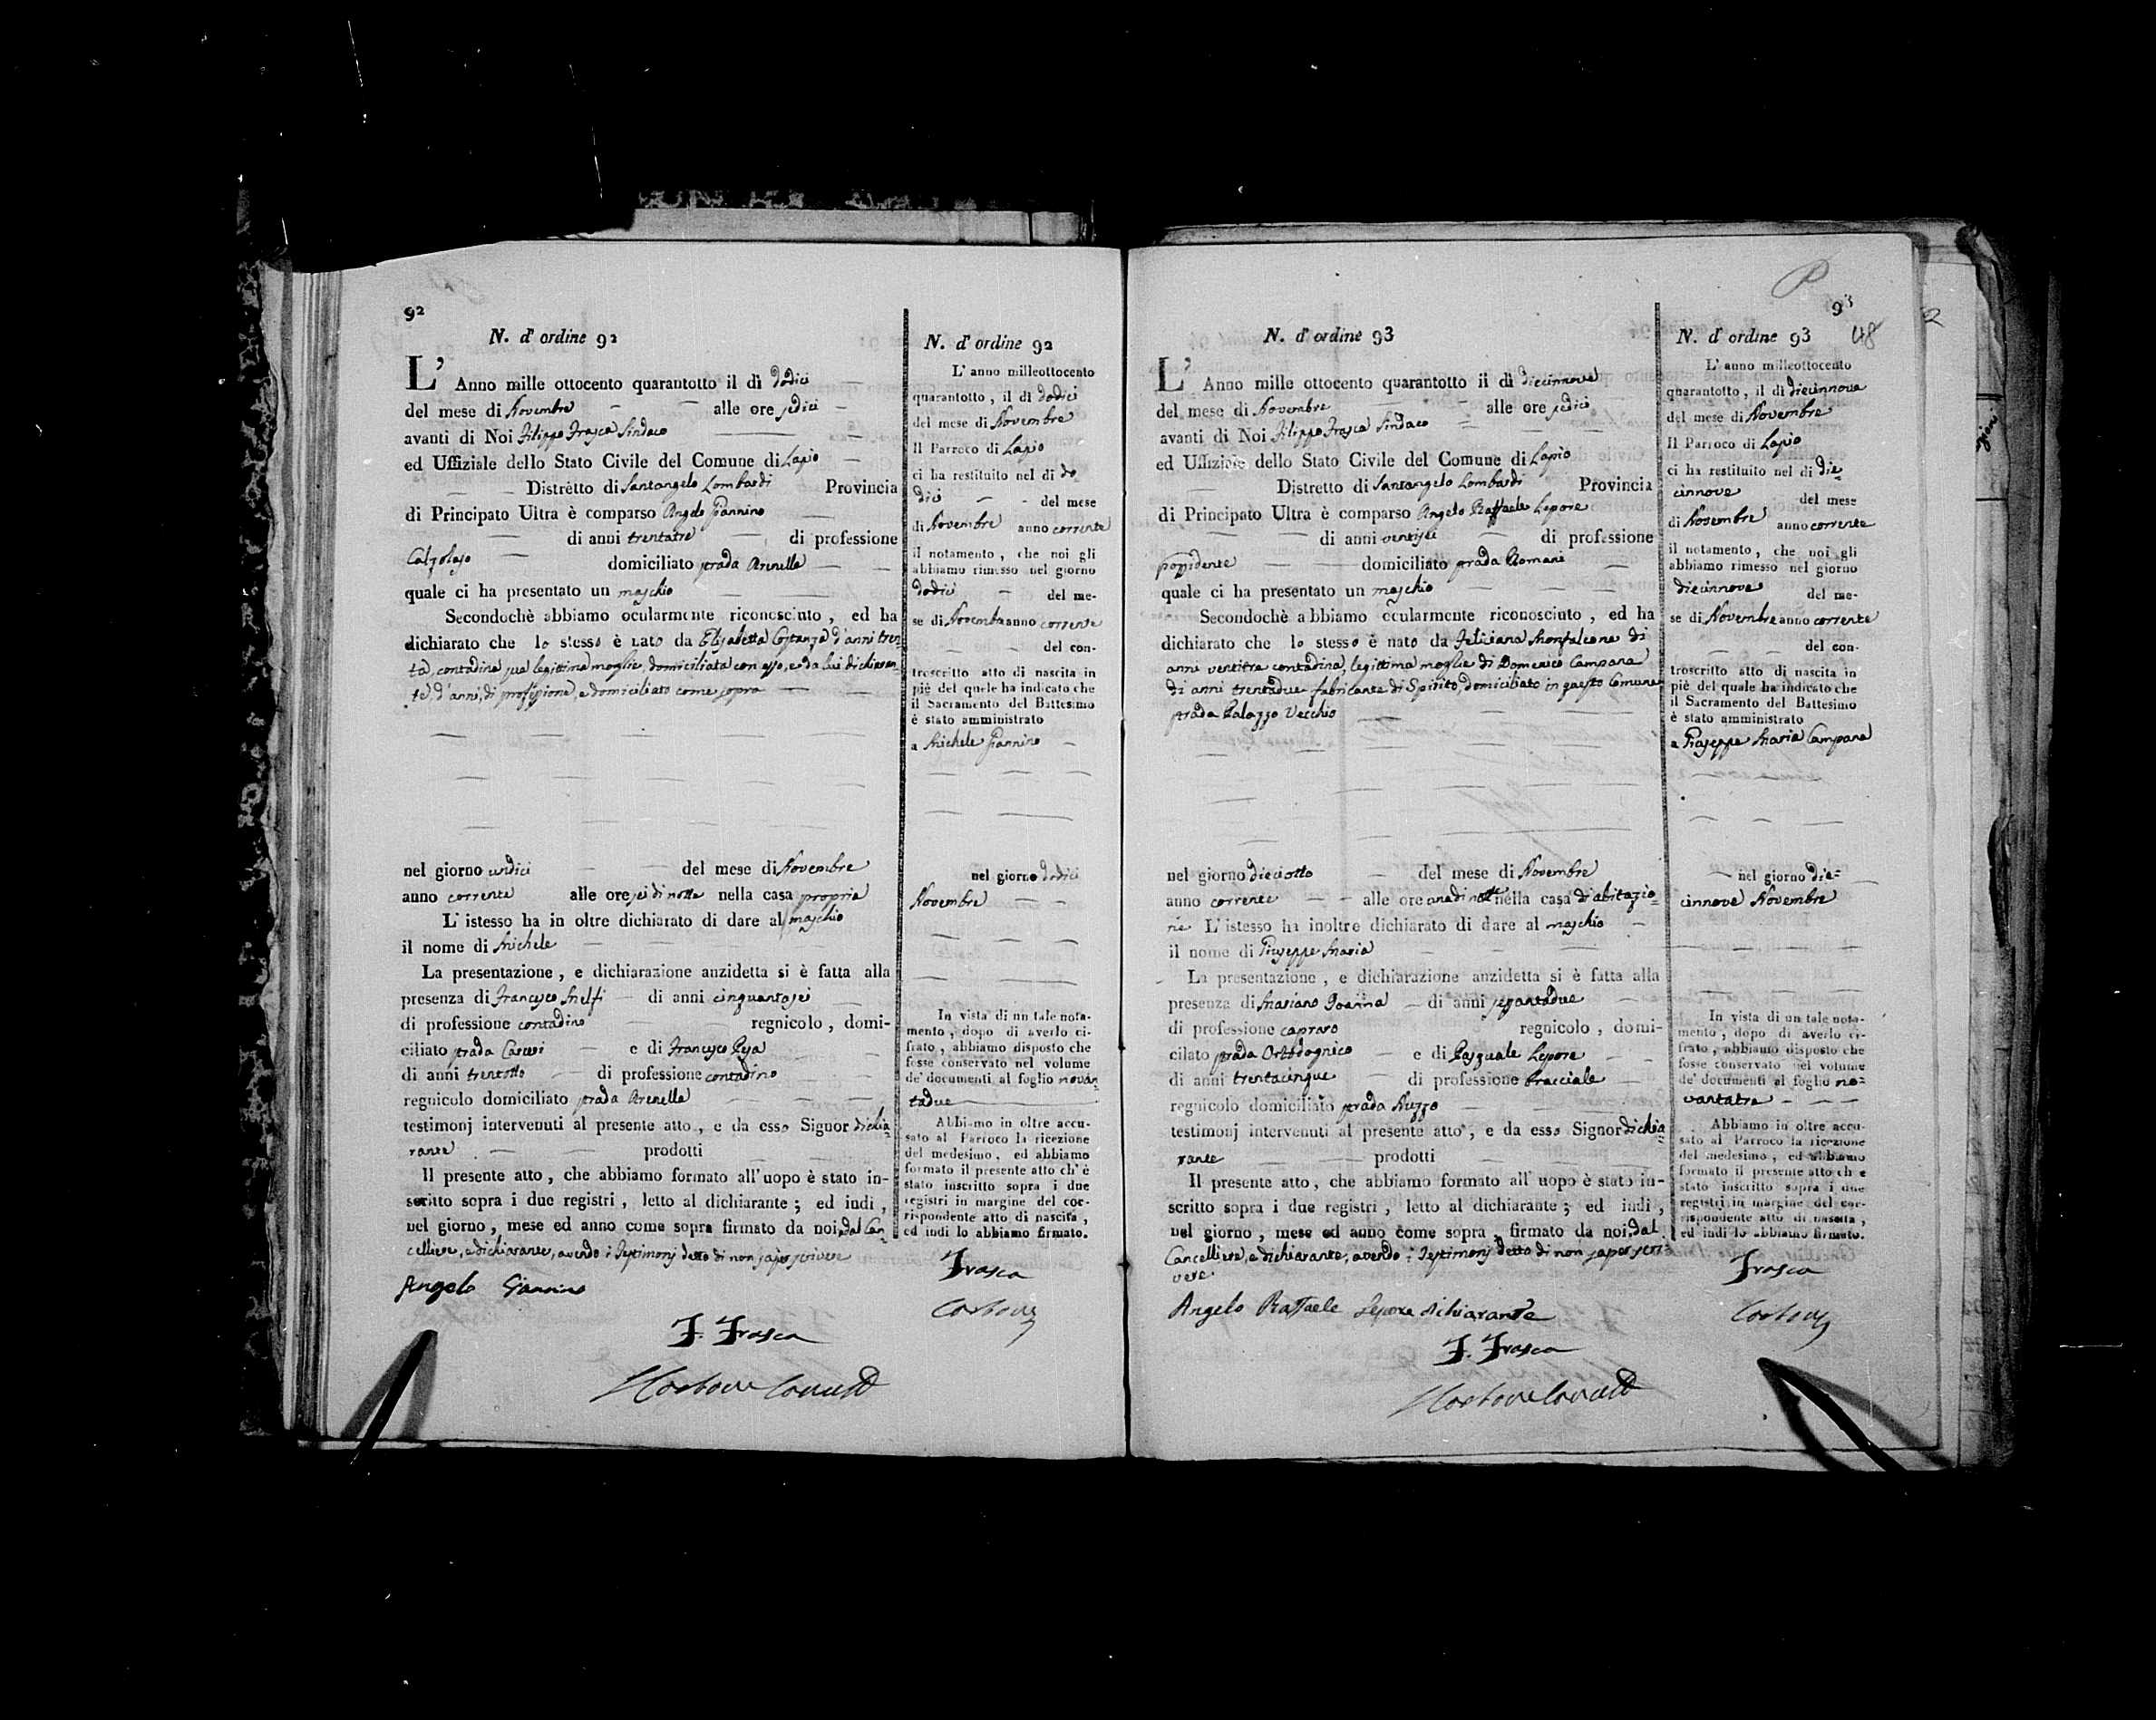 92
N. d'ordine 92
L' Anno mille ottocento quarantotto il dì dodici
del mese di Novembre alle ore sedici
avanti di Noi Filippo Frasca Sindaco
ed Uffiziale dello Stato Civile del Comune di Lapio
Distretto di Santangelo Lombardi Provincia
di Principato Ultra è comparso Angelo Giannino
di anni trentatre di professione
Calzolajo domiciliato strada Arenella
quale ci ha presentato un maschio
Secondochè abbiamo ocularmente riconosciuto, ed ha
dichiarato che lo stesso è nato da Elisabetta Costanza d'anni tren
ta, contadina, sua legittima moglie, domiciliata con esso, e da lui dichiaran-
te, d'anni, di professione, e domiciliato come sopra
nel giorno undici del mese di Novembre
anno corrente alle ore sei di notte nella casa propria
L'istesso ha in oltre dichiarato di dare al maschio
il nome di Michele
La presentazione, e dichiarazione anzidetta si è fatta alla
presenza di Francesco di anni cinquantasei
di professione contadino regnicolo, domi-
ciliato strada e di Francesco
di anni trentotto di professione contadino
regnicolo domiciliato strada Arenella
testimonj intervenuti al presente atto, e da esso Signor dichia-
rante prodotti
Il presente atto, che abbiamo formato all'uopo è stato in-
scritto sopra i due registri, letto al dichiarante; ed indi,
nel giorno, mese ed anno come sopra firmato da noi, dal Can-
celliere, e dichiarante, avendo i Testimonj detto di non saper scrivere
Angelo Giannino
F. Frasca
N. d'ordine 92
L'anno milleottocento
quarantotto, il dì dodici
del mese di Novembre
Il Parroco di Lapio
ci ha restituito nel dì do
dici del mese
di Novembre anno corrente
il notamento, che noi gli
abbiamo rimesso nel giorno
dodici del me-
se di Novembre anno corrente
del con-
troscritto atto di nascita in
piè del quele ha indicato che
il Sacramento del Battesimo
è stato amministrato
a Michele Giannino
nel giorno dodici
Novembre
In vista di un tale nota-
mento, dopo di averlo ci-
frato, abbiamo disposto che
fosse conservato nel volume
de' documenti al foglio novan-
tadue
Abbiamo in oltre accu-
sato al Parroco la ricezione
del medesimo, ed abbiamo
formato il presente atto ch'è
stato inscritto sopra i due
registri in margine del cor-
rispondente atto di nascita,
ed indi lo abbiamo firmato.
Frasca
93
48
N. d'ordine 93
L' Anno mille ottocento quarantotto il dì diecinnove
del mese di Novembre alle ore sedici
avanti di Noi Filippo Frasca Sindaco
ed Uffiziale dello Stato Civile del Comune di Lapio
Distretto di Santangelo Lombardi Provincia
di Principato Ultra è comparso Angelo Raffaele Lepore
di anni ventisei di professione
possidente domiciliato strada Romani
quale ci ha presentato un maschio
Secondochè abbiamo ocularmente riconosciuto, ed ha
dichiarato che lo stesso è nato da Feliciana Monfalcone di
anni ventitre contadina, legittima moglie di Domenico Campana
di anni trentadue fabricante di Spirito, domiciliato in questo Comune
strada Palazzo Vecchio
nel giorno dieciotto del mese di Novembre
anno corrente alle ore una di notte nella casa di abitazio-
ne L'istesso ha inoltre dichiarato di dare al maschio
il nome di Giuseppe Maria
La presentazione, e dichiarazione anzidetta si è fatta alla
presenza di Mariano Ioanna di anni sessantadue
di professione capraro regnicolo, domi-
cilato strada Ortodognico e di Pasquale Lepore
di anni trentacinque di professione bracciale
regnicolo domiciliato strada Nuzzo
testimonj intervenuti al presente atto, e da esso Signor dichia-
rante prodotti
Il presente atto, che abbiamo formato all'uopo è stato in-
scritto sopra i due registri, letto al dichiarante; ed indi,
nel giorno, mese ed anno come sopra, firmato da noi, dal
Cancelliere, e dichiarante, avendo i Testimonj detto di non saper scri-
vere
Angelo Raffaele Lepore dichiarante
F. Frasca
N. d'ordine 93
L'anno milleottocento
quarantotto, il dì diecinnove
del mese di Novembre
Il Parroco di Lapio
ci ha restituito nel dì die-
cinnove del mese
di Novembre anno corrente
il notamento, che noi gli
abbiamo rimesso nel giorno
diecinnove del me-
se di Novembre anno corrente
del con-
troscritto atto di nascita in
piè del quale ha indicato che
il Sacramento del Battesimo
è stato amministrato
a Giuseppe Maria Campana
nel giorno die-
cinnove Novembre
In vista di un tale nota-
mento, dopo di averlo ci-
frato, abbiamo disposto che
fosse conservato nel volume
de' documenti al foglio no-
vantatre
Abbiamo in oltre accu-
sato al Parroco la ricezione
del medesimo, ed abbiamo
formato il presente atto ch'è
stato inscritto sopra i due
registri in margine del cor-
rispondente atto di nascita,
ed indi lo abbiamo firmato.
Frasca